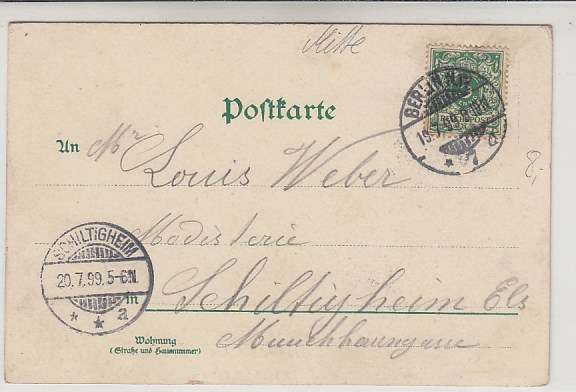 Mitte
Postkarte
BERLIN N.
19.7.99
a
REICHSPOST
An Mr Louis Weber
8,-
Modisterie
SCHILTIGHEIM
20.7.99.5-6N.
* * a
in Schiltigheim Els
Wohnung
(Straße und Hausnummer)
Münchhausengasse